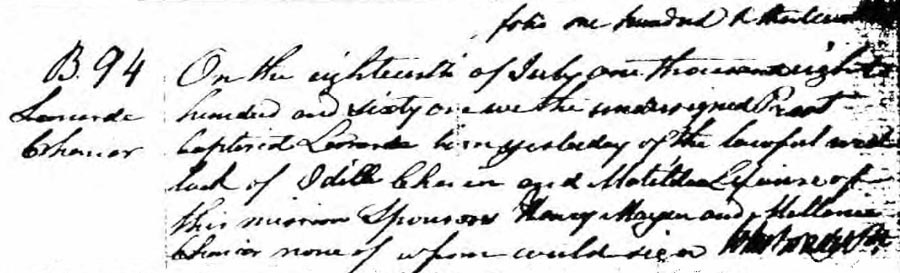 folio one hundred & thirteen
B. 94
Leonarde
Chenier
On the eighteenth of July one thousand eight
hundred and sixty one we the undersigned Priest
baptized Leonarde born yesterday of the lawful wed
lock of Odill Chenier and Matilda of
this mission Sponsors Henry Mayer and
Chenier none of whom could sign